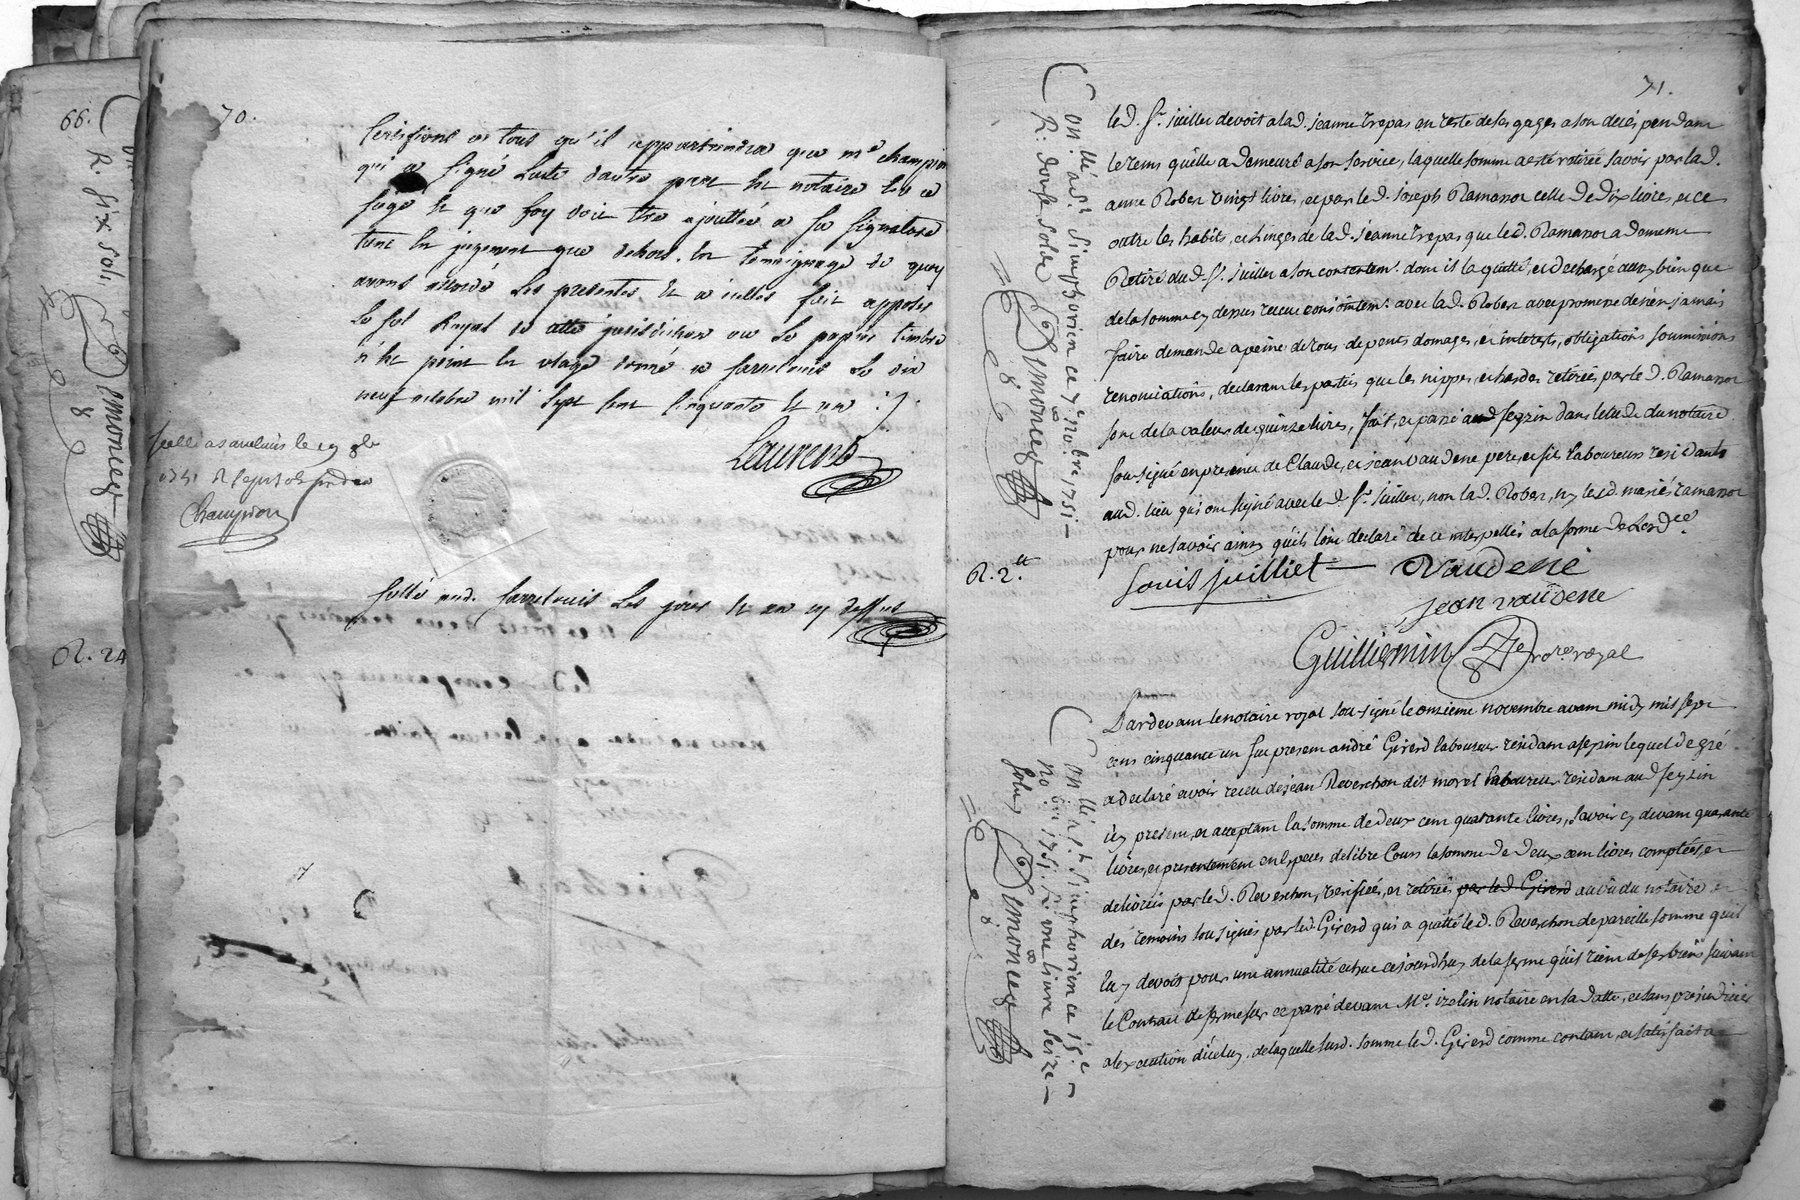 66.
R. six sols
Demoncez
R. 24
70.
Certifions a tous qu'il appartiendra que me champion
qui a signé L'acte d'autre part est notaire en ce
siege et que foy doit etre ajouttée a sa signature
tant en jugement que dehors. En temoignage de quoy
avons accordé Les presentes et a icelles fait apposer
Le scel Royal de cette jurisdiction ou Le papier timbré
n'est point en usage donné a sarrelouis Le dix
neuf octobre mil sept cent cinquante et un
Laurens
scellé a sarelouis le 19 8bre
1751
Champion
scellé aud. sarrelouis Les jour et an cy dessus
71.
led. sr. juillier devoit a lad. jeanne trepas en reste de ses gages a son decés pendant
le tems qu'elle a demeuré a son service, laquelle somme a esté retirée savoir par lad.
anne Rober vingt livres, et par led. joseph Ramanor celle de dix livres, et ce
outre les habits, et linges de lad. jeanne trepas que led. Ramanor a de meme
Retiré dud. sr. juillier a son contentemt. dont il la quitté, et decharge aussy bien que
de la somme cy dessus receue conjointemt. avec lad. Rober avec promesse de n'en jamais
faire demande a peine de tous depents domages, et interests, obligations soumissions
renonciations, declarant les parties que les nippes, et hardes retirées par led. Ramanor
sont de la valeur de quinze livres, fait, et passé aud seyzin dans l'etude du notaire
sousigné en presence de Claude, et jean vaudene pere, et fils laboureurs residants
aud. lieu qui ont signé avec le d. sr. juillier, non lad. Rober, ny led. mariés ramanor
pour ne savoir ainsy qu'ils l'ont declaré de ce interpellés a la forme de Lordce.
Louis juilliet
Vaudene
jean vaudene
Guilliermin
notre. royal
R. 2tt.
Conllé a st. simphorien ce 7e. nobre 1751
R. douse sols
Demoncez
Pardevant le notaire royal sou-signé le onzieme novembre avant midy mil sept
cens cinquante un fut present andré Girerd laboureur residant a seyzin lequel de gré
a declaré avoir receu de jean Reverchon dit morel laboureur residant aud seyzin
icy present, et acceptant la somme de deux cent quarante livres, savoir cy devant quarante
livres, et presentement en especes de libre Cours la somme de deux cent livres comptées, et
delivrés par led. Reverchon, verifiées, et retirées par led. Girerd au vû du notaire et
des temoins sousignés par led. Girerd qui a quitté led. Reverchon de pareille somme qu'il
luy devoit pour une annualité echue cejourdhuy de la ferme qu'il tient de ses biens suivant
le Contrat de ferme sur ce passé devant Me. izelin notaire en sa datte, et sans prejudicier
a l'execution d'iceluy, de laquelle susd. somme led. Girerd comme contant, et satisfait a
Conllé a st. simphorien ce 15e
nobre 1751. R. une livre seize
sols
Demoncez